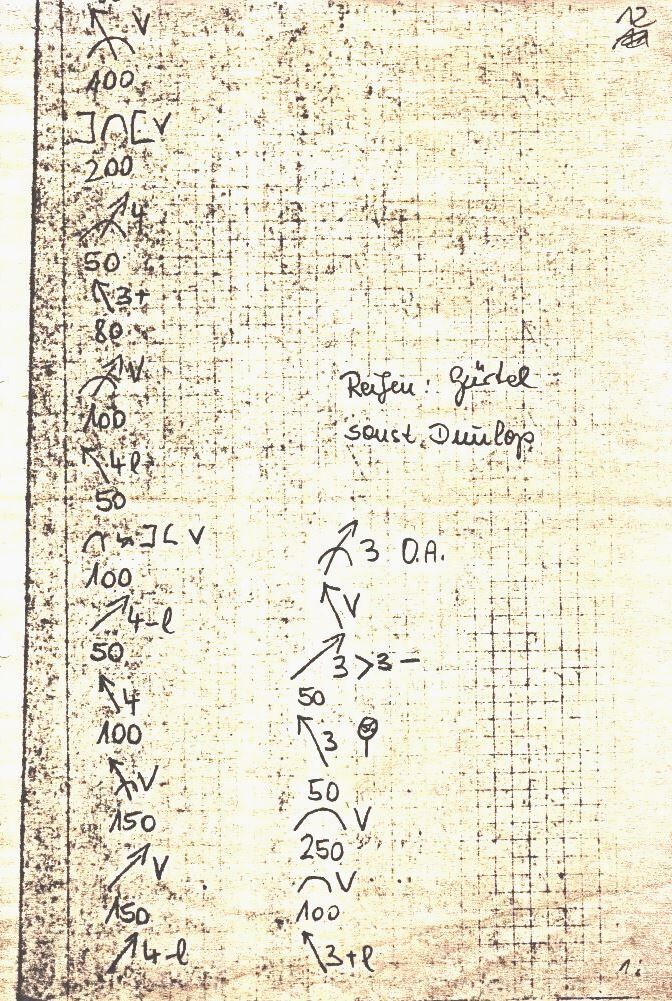 12
V
100
][V
200
4
50
3+
80
V
100
4l
50
][ V
100
4-l
50
4
100
V
150
V
150
4-l
Reifen: Gürtel
sonst Dunlop
3 O.A.
V
3 > 3 -
50
3
50
V
250
V
100
3+l
1.